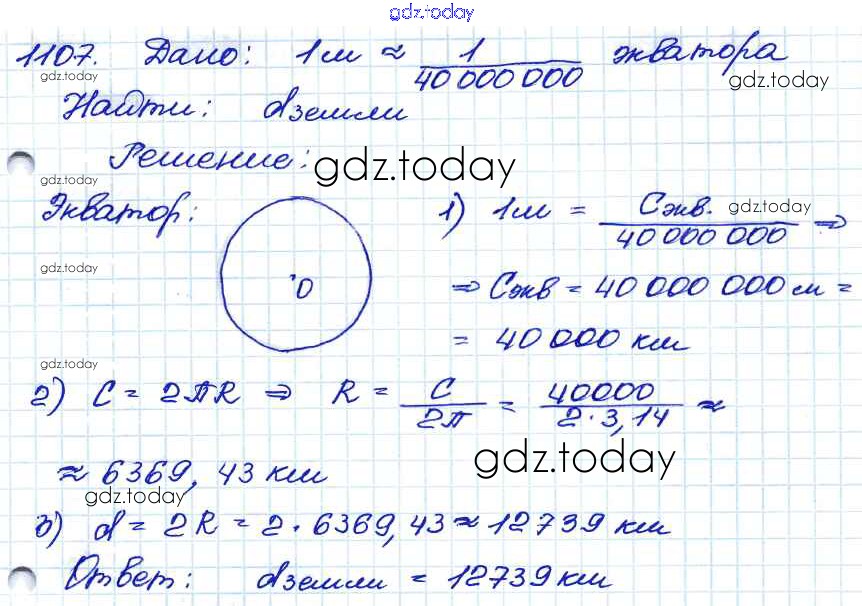 gdz.today
1107. Дано: 1м ≈ 1/40 000 000 экватора
gdz.today gdz.today
Найти: dземли
Решение: gdz.today
gdz.today
Экватор: 1) 1м = Cэкв./40 000 000 ⇒ gdz.today
O
gdz.today
⇒ Cэкв = 40 000 000 м =
= 40 000 км
gdz.today
2) C = 2πR ⇒ R = C/2π = 40000/2·3,14 ≈
≈ 6369,43 км gdz.today
gdz.today
3) d = 2R = 2·6369,43 ≈ 12739 км
Ответ: dземли = 12739 км